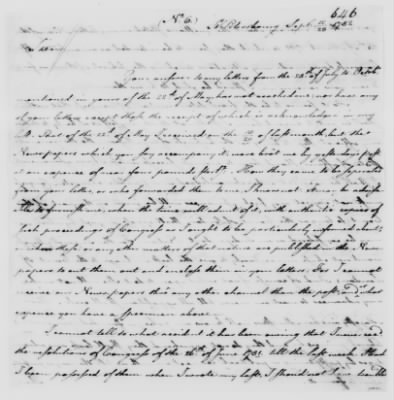 (No. 6.)
646
St. Petersburg Sept.
1782
Sir
Your answer to my letters from the 28th of July to Octob.
mentioned in yours of the 22d of May has not reached me nor have any
of your letters except that the receipt of which is acknowledged in my
of the 22d of May I received on the of last month, but the
Newspapers which you say accompany it, were sent me by yesterday's post
at an expence of near four pounds How they came to be seperated
from your letter, or who forwarded them I know not
me, when the time will admit of it, with authentic copies of
such proceedings of Congress as I ought to be particularly informed about,
when these or any other matters of that nature are published in the News
papers to cut them out and inclose them in your letters. For I cannot
receive any Newspapers thro' any other channel than the post, & of that
expence you have a specimen above.
I cannot tell to what accident it has been owing that I never
the resolutions of Congress of the 26th of June 1781 till the last week. Had
I been possessed of them when I wrote my last, I should not have